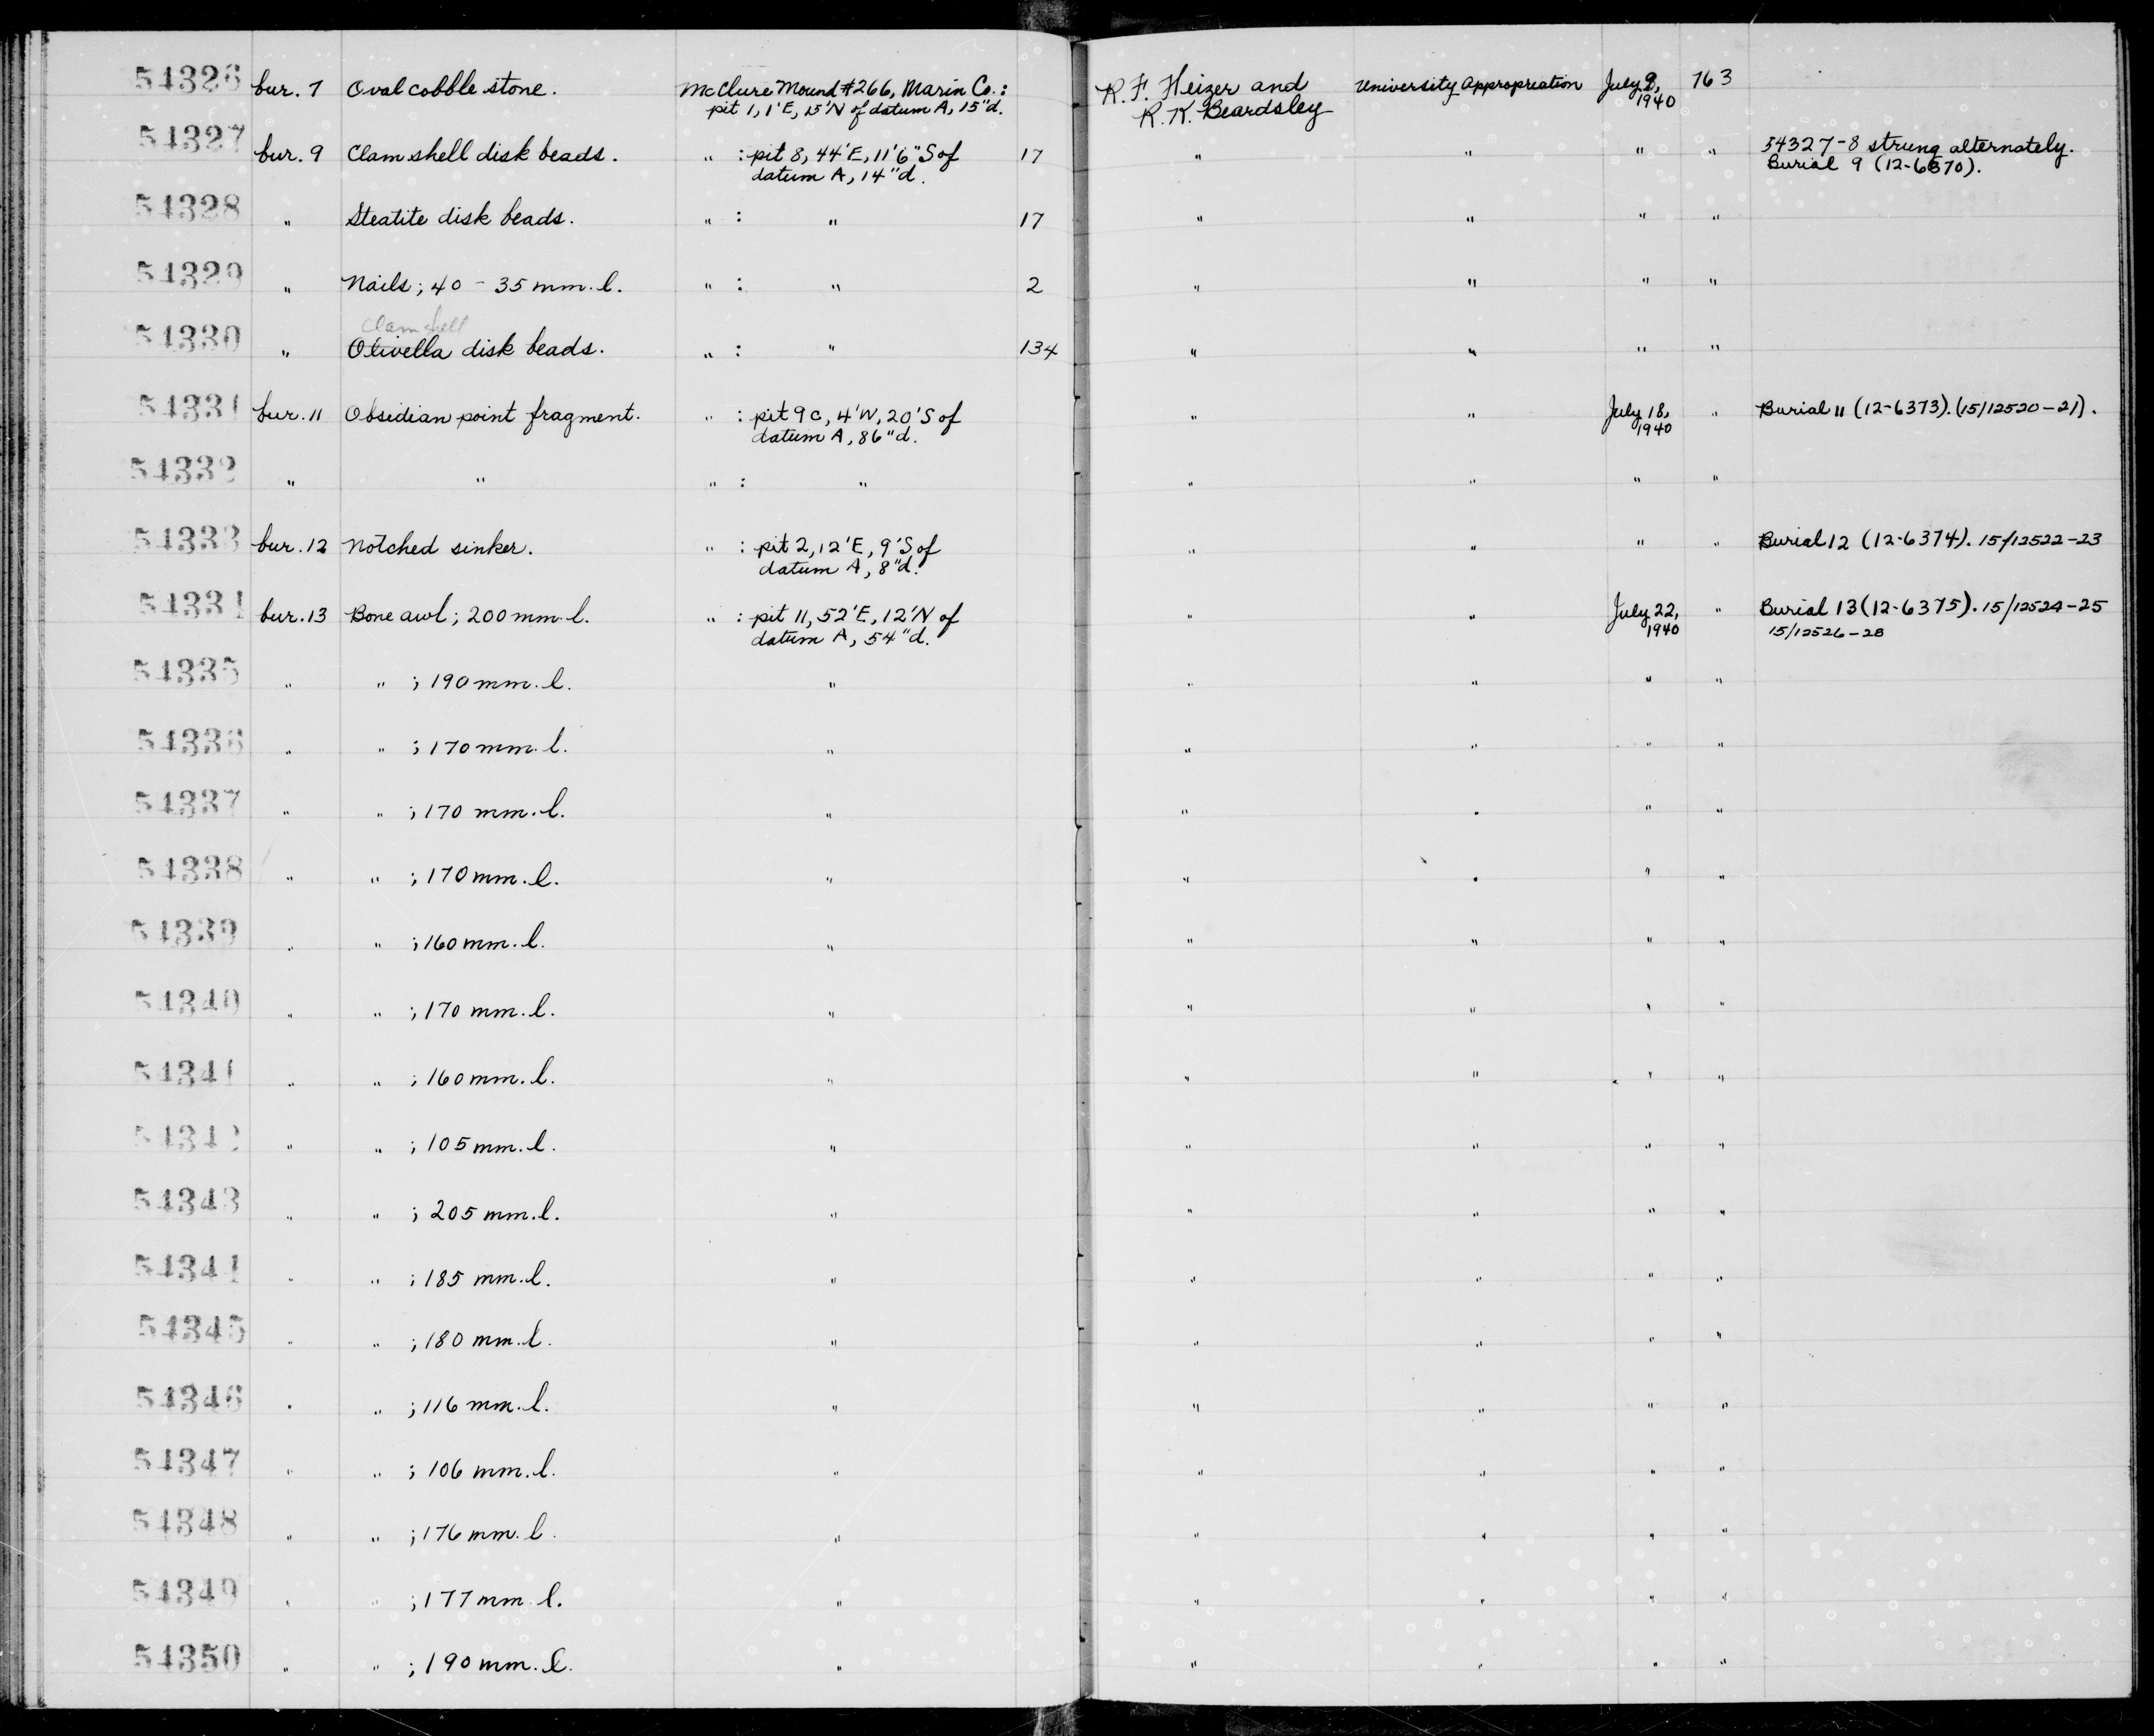 54326 bur. 7 Oval cobble stone. McClure Mound #266, Marin Co.: R. F. Heizer and University Appropriation July 9, 763
pit 1, 1'E, 15'N of datum A, 15"d. R. K. Beardsley 1940
54327 bur. 9 Clam shell disk beads. " : pit 8, 44'E, 11'6"S of 17 " " " " 54327-8 strung alternately.
datum A, 14"d. Burial 9 (12-6370).
54328 " Steatite disk beads. " : " 17 " " " "
54329 " Nails; 40 - 35 mm. l. " : " 2 " " " "
Clam shell
54330 " Olivella disk beads. " : " 134 " " " "
54331 bur. 11 Obsidian point fragment. " : pit 9c, 4'W, 20'S of " " July 18, " Burial 11 (12-6373). (15/12520-21).
datum A, 86"d. 1940
54332 " " " : " " " " "
54333 bur. 12 Notched sinker. " : pit 2, 12'E, 9'S of " " " " Burial 12 (12-6374). 15/12522-23
datum A, 8"d.
54334 bur. 13 Bone awl; 200 mm. l. " : pit 11, 52'E, 12'N of " " July 22, " Burial 13 (12-6375). 15/12524-25
datum A, 54"d. 1940 15/12526-28
54335 " " ; 190 mm. l. " " " " "
54336 " " ; 170 mm. l. " " " " "
54337 " " ; 170 mm. l. " " " " "
54338 " " ; 170 mm. l. " " " " "
54339 " " ; 160 mm. l. " " " " "
54340 " " ; 170 mm. l. " " " " "
54341 " " ; 160 mm. l. " " " " "
54342 " " ; 105 mm. l. " " " " "
54343 " " ; 205 mm. l. " " " " "
54344 " " ; 185 mm. l. " " " " "
54345 " " ; 180 mm. l. " " " " "
54346 " " ; 116 mm. l. " " " " "
54347 " " ; 106 mm. l. " " " " "
54348 " " ; 176 mm. l. " " " " "
54349 " " ; 177 mm. l. " " " " "
54350 " " ; 190 mm. l. " " " " "